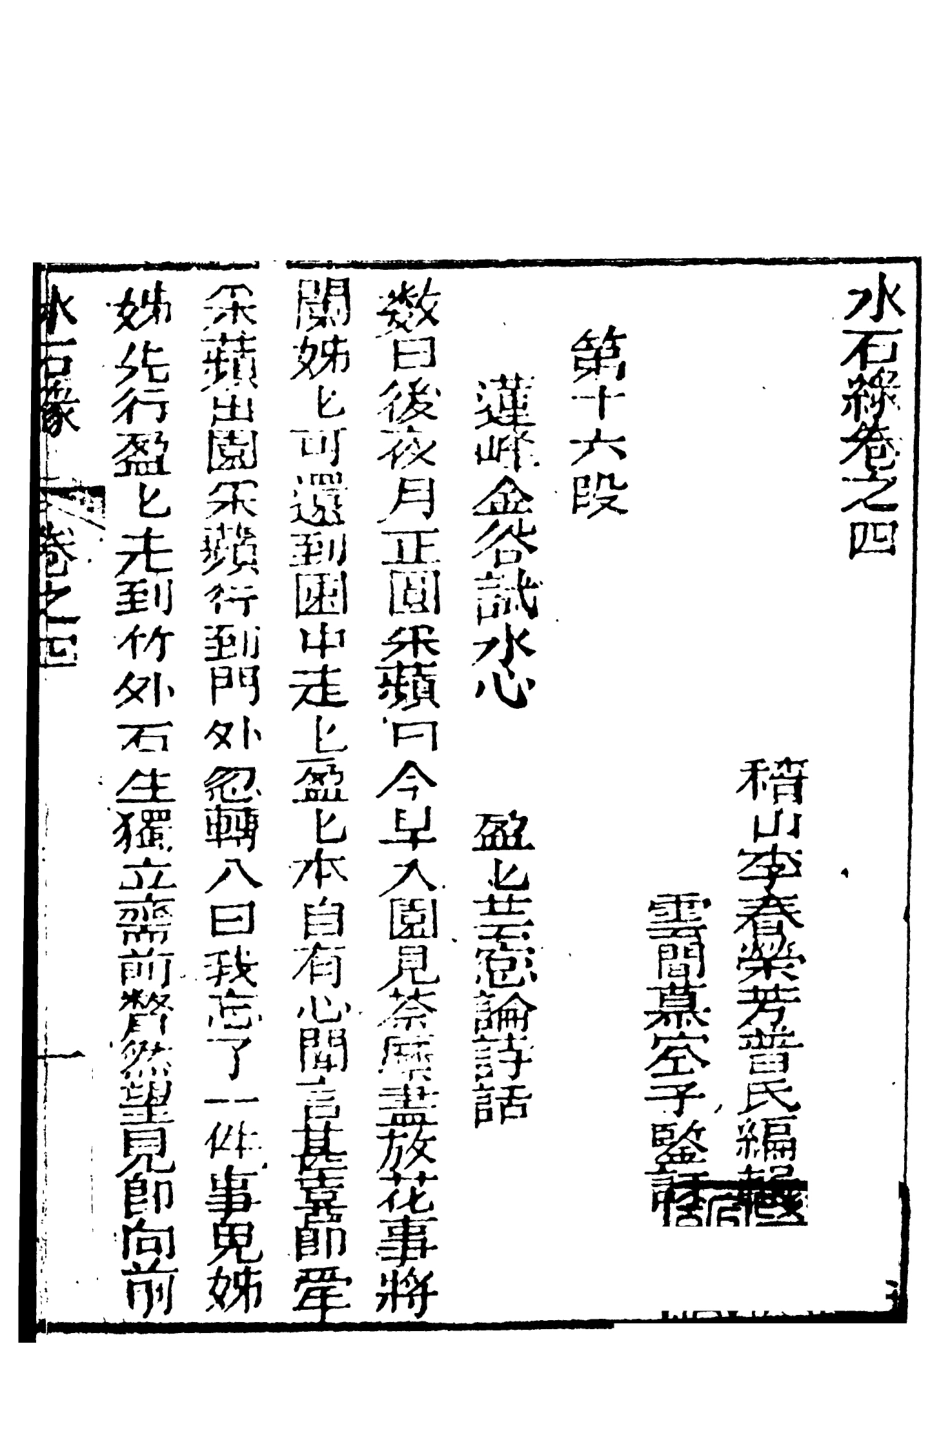 水石緣卷之四
稽山李春榮芳普氏編輯
雲間慕空子鑒訂
第十六段
蓮峰金谷試水心　盈匕芸窓論詩話
数日後夜月正圓采蘋曰今早入園見荼䕷盡放花事將
闌姊匕可還到園中走匕盈匕本自有心聞言甚喜卽牽
采蘋出園采蘋行到門外忽轉入曰我忘了一件事兒姊
姊先行盈匕走到竹外石生獨立齋前瞥然望見卽向前
水石緣
卷之四
一